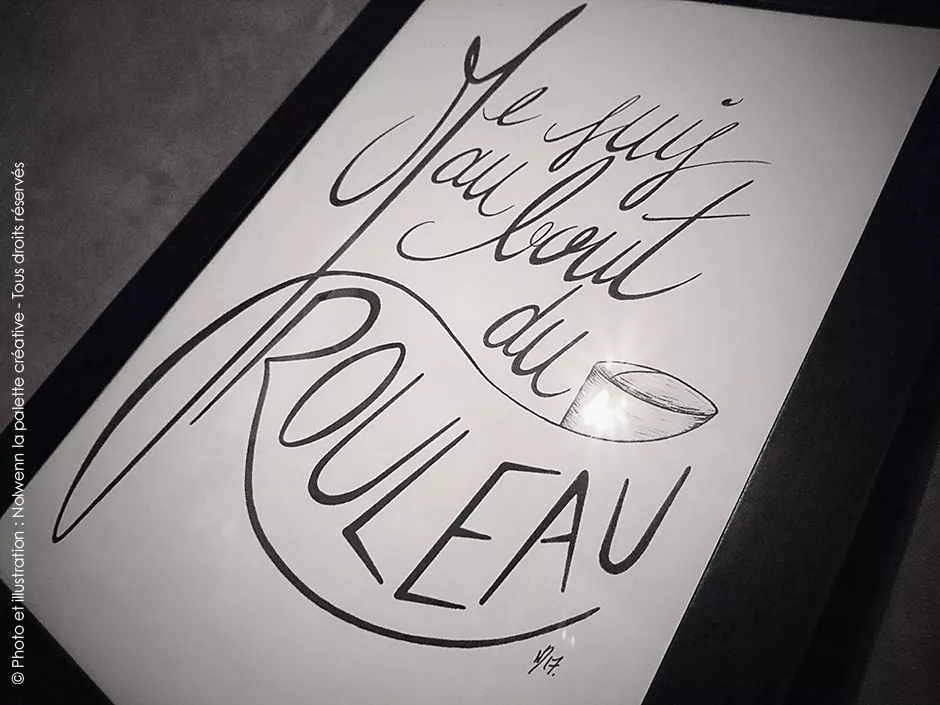 Je suis
au bout
du
ROULEAU
17.
© Photo et illustration : Nolwenn la palette créative - Tous droits réservés